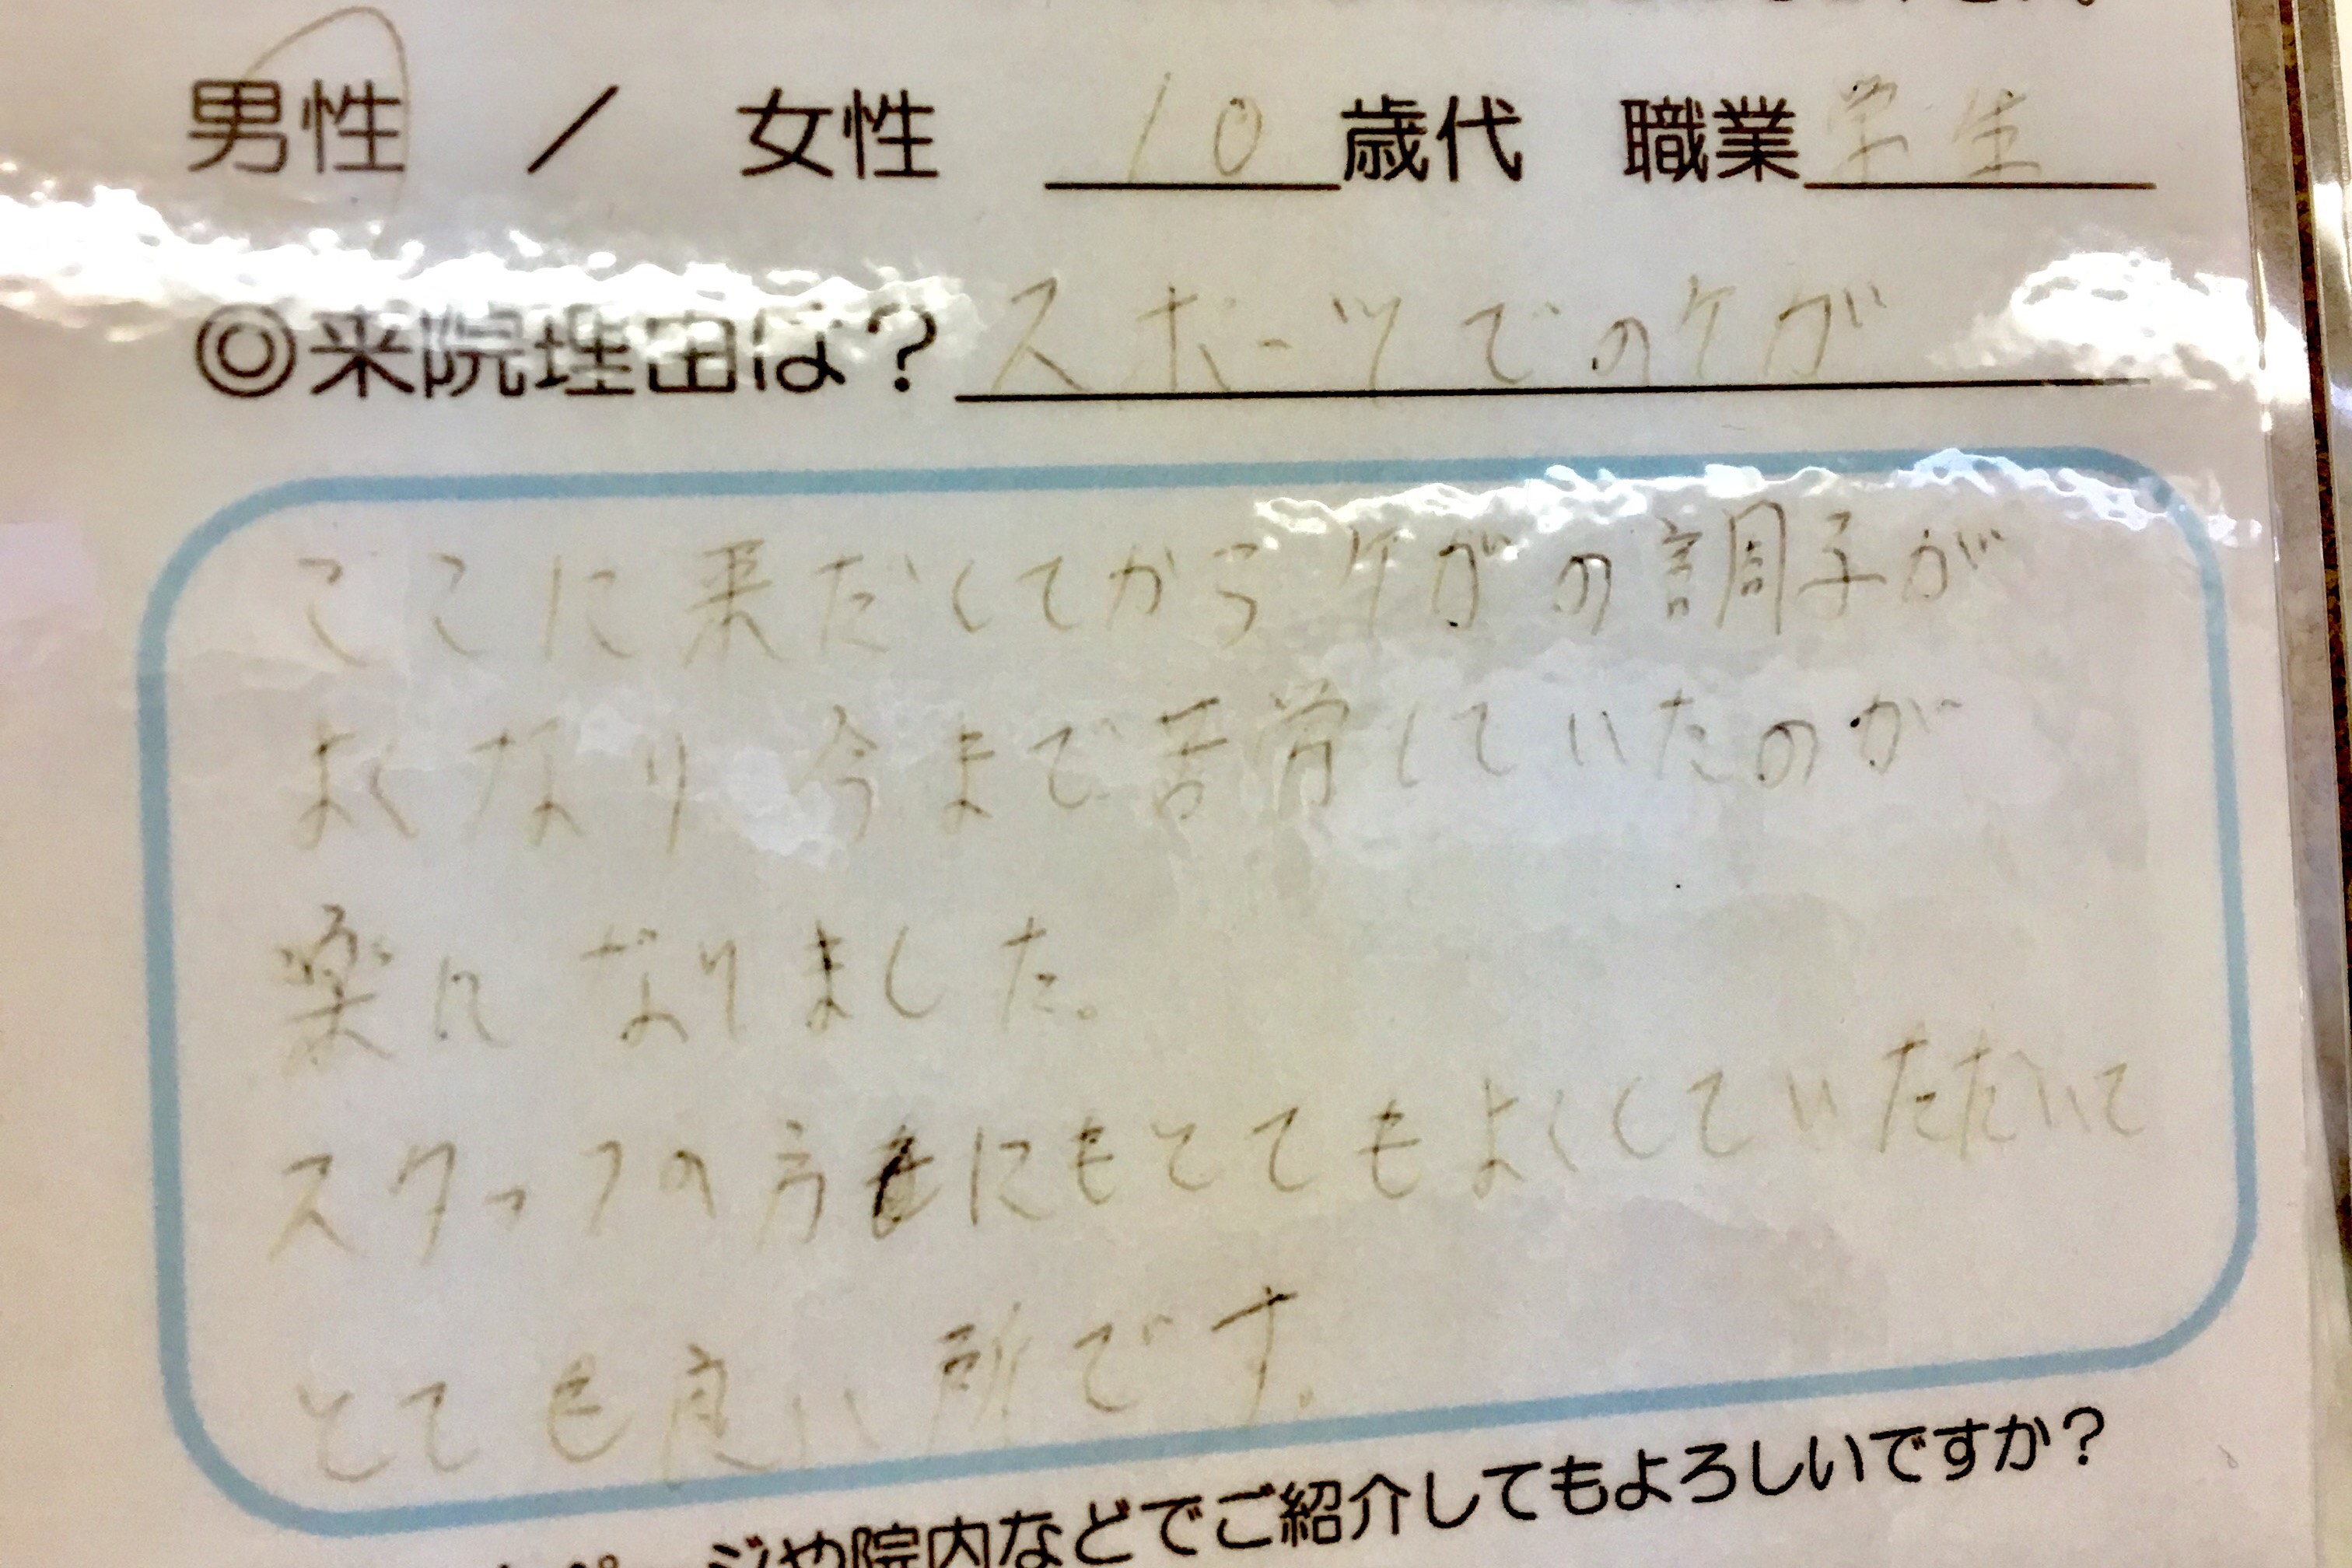 男性 / 女性 10歳代 職業学生
◎来院理由は?スポーツでのケガ
ここに来だしてからケガの調子が
よくなり今まで苦労していたのが
楽になりました。
スタッフの方にもとてもよくしていただいて
とても良い所です。
ページや院内などでご紹介してもよろしいですか?